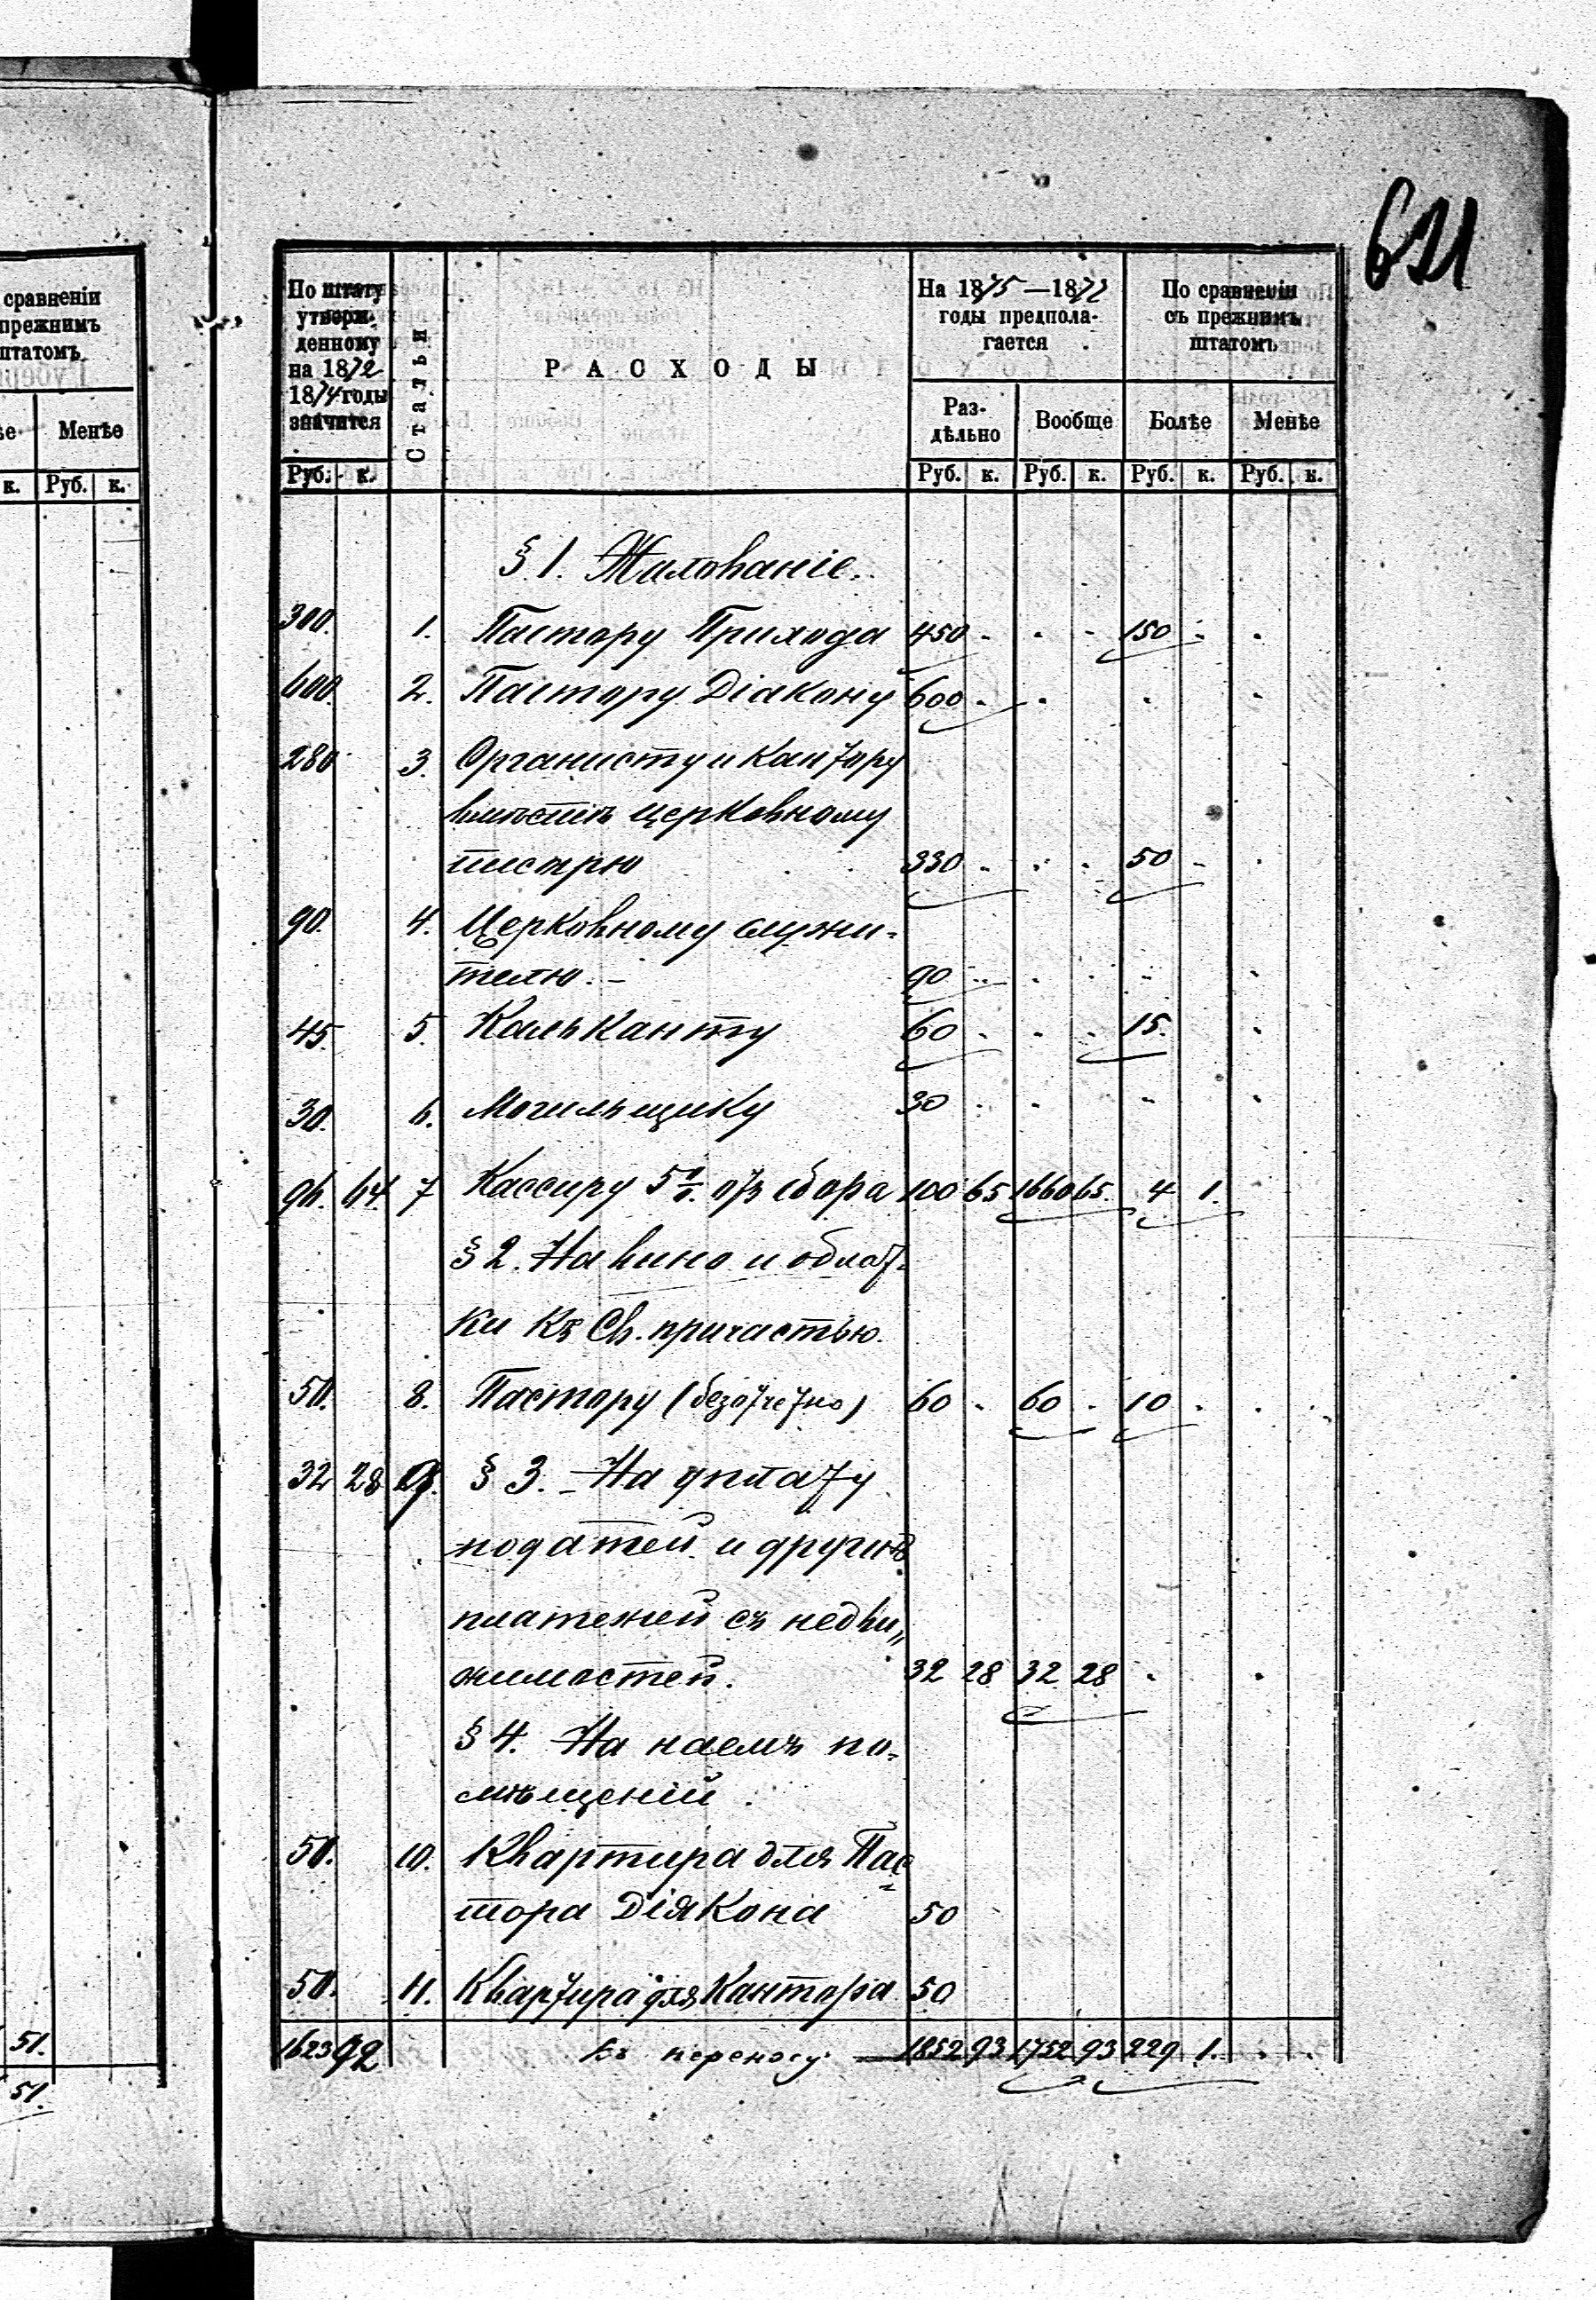 621
сравненiи
прежнимъ
штатомъ
Менѣе
к. Руб. к.
51.
51.
По штату утверж-
денному
на 1872
1874 годы
значится
Статьи
РАСХОДЫ
На 1875—1877
годы предпола-
гается
По сравненiи
съ прежнимъ
штатомъ
Раз-
дѣльно
Вообще
Болѣе
Менѣе
Руб. к. Руб. к. Руб. к. Руб. к. Руб. к.
§ 1. Жалованіе.
300. 1. Пастору Прихода 450 - . - 150 - .
600. 2. Пастору Діакону 600 - . . .
280 3. Органисту и Кантору
вмѣстѣ церковному
писарю 330 - . - 50 - .
90. 4. Церковному служи-
телю. - 90 - . . - .
45. 5. Кальканту 60 - . - 15. .
30. 6. Могильщику 30 . . . .
96. 64. 7 Кассиру 5% отъ сбора 100 65 1660 65. 4 1.
§ 2. На вино и облат-
ки къ Св. причастью.
50. 8. Пастору (безотчетно) 60 - 60 - 10 . . .
32 28 9. § 3. - На уплату
податей и другихъ
платежей съ недви„
жимостей. 32 28 32 28 . .
§ 4. На наемъ по-
мѣщеній.
50. 10. Квартира для Пас
тора Діякона 50
50. 11. Квартира для Кантора 50
1623 92 Къ переносу — 1852 93 1752 93 229 1. . .